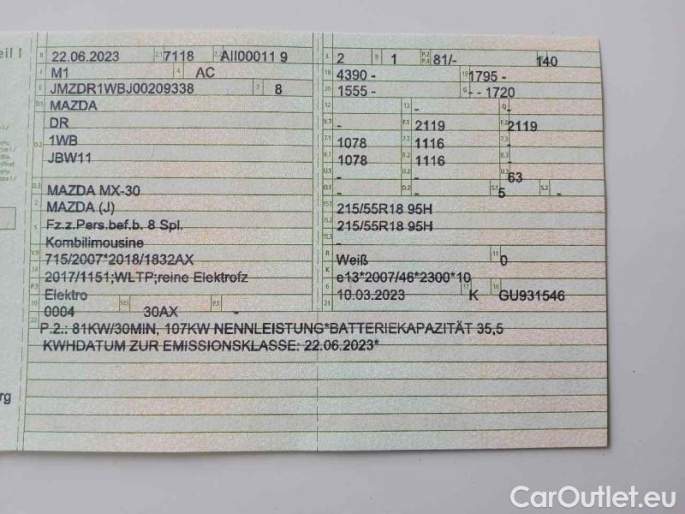 eil I
22.06.2023 7118 AII00011 9 2 1 81/- 140
M1 AC 4390 - 1795 -
JMZDR1WBJ00209338 8 1555 - - - 1720
MAZDA - -
DR - 2119 2119
1WB 1078 1116 -
JBW11 1078 1116 -
- - 63
MAZDA MX-30 - - 5 -
MAZDA (J) 215/55R18 95H
Fz.z.Pers.bef.b. 8 Spl. 215/55R18 95H
Kombilimousine
715/2007*2018/1832AX Weiß 0
2017/1151;WLTP;reine Elektrofz e13*2007/46*2300*10
Elektro 10.03.2023 K GU931546
0004 30AX -
P.2.: 81KW/30MIN, 107KW NENNLEISTUNG*BATTERIEKAPAZITÄT 35,5
KWHDATUM ZUR EMISSIONSKLASSE: 22.06.2023*
rg
CarOutlet.eu